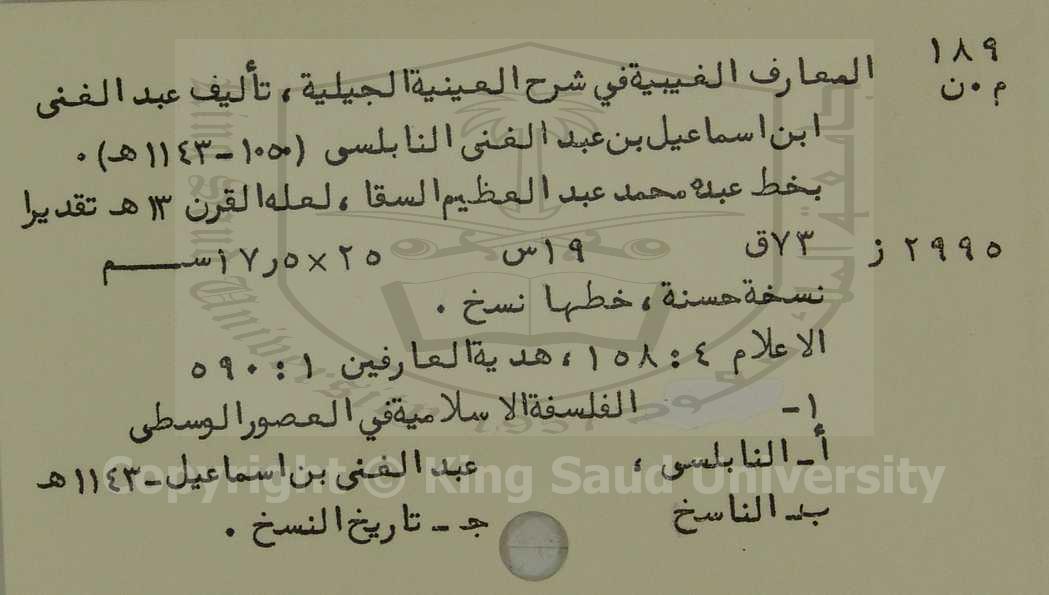 ١٨٩
م٠ن
المعارف الغيبية في شرح العينية الجيلية ، تأليف عبد الغنى
ابن اسماعيل بن عبد الغنى النابلسى (١٠٥٠-١١٤٣هـ) .
بخط عبده محمد عبد العظيم السقا ، لعله القرن ١٣ هـ تقديرا
٢٩٩٥ ز ٧٣ق ١٩س ٢٥×١٧٫٥سم
نسخة حسنة ، خطها نسخ .
الاعلام ٤ : ١٥٨ ، هدية العارفين ١ : ٥٩٠
١- الفلسفة الاسلامية في العصور الوسطى
أ- النابلسى ، عبد الغنى بن اسماعيل-١١٤٣هـ
ب- الناسخ ج- تاريخ النسخ .
Copyright © King Saud University
1957